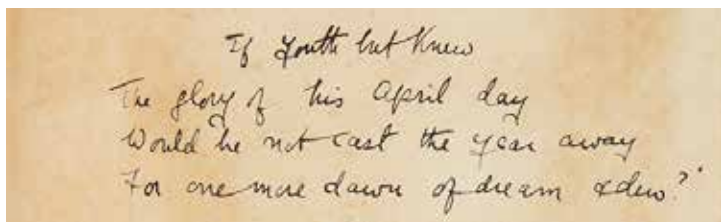 If Youth but Knew
The glory of his April day
Would he not cast the year away
For one more dawn of dream & dew?"